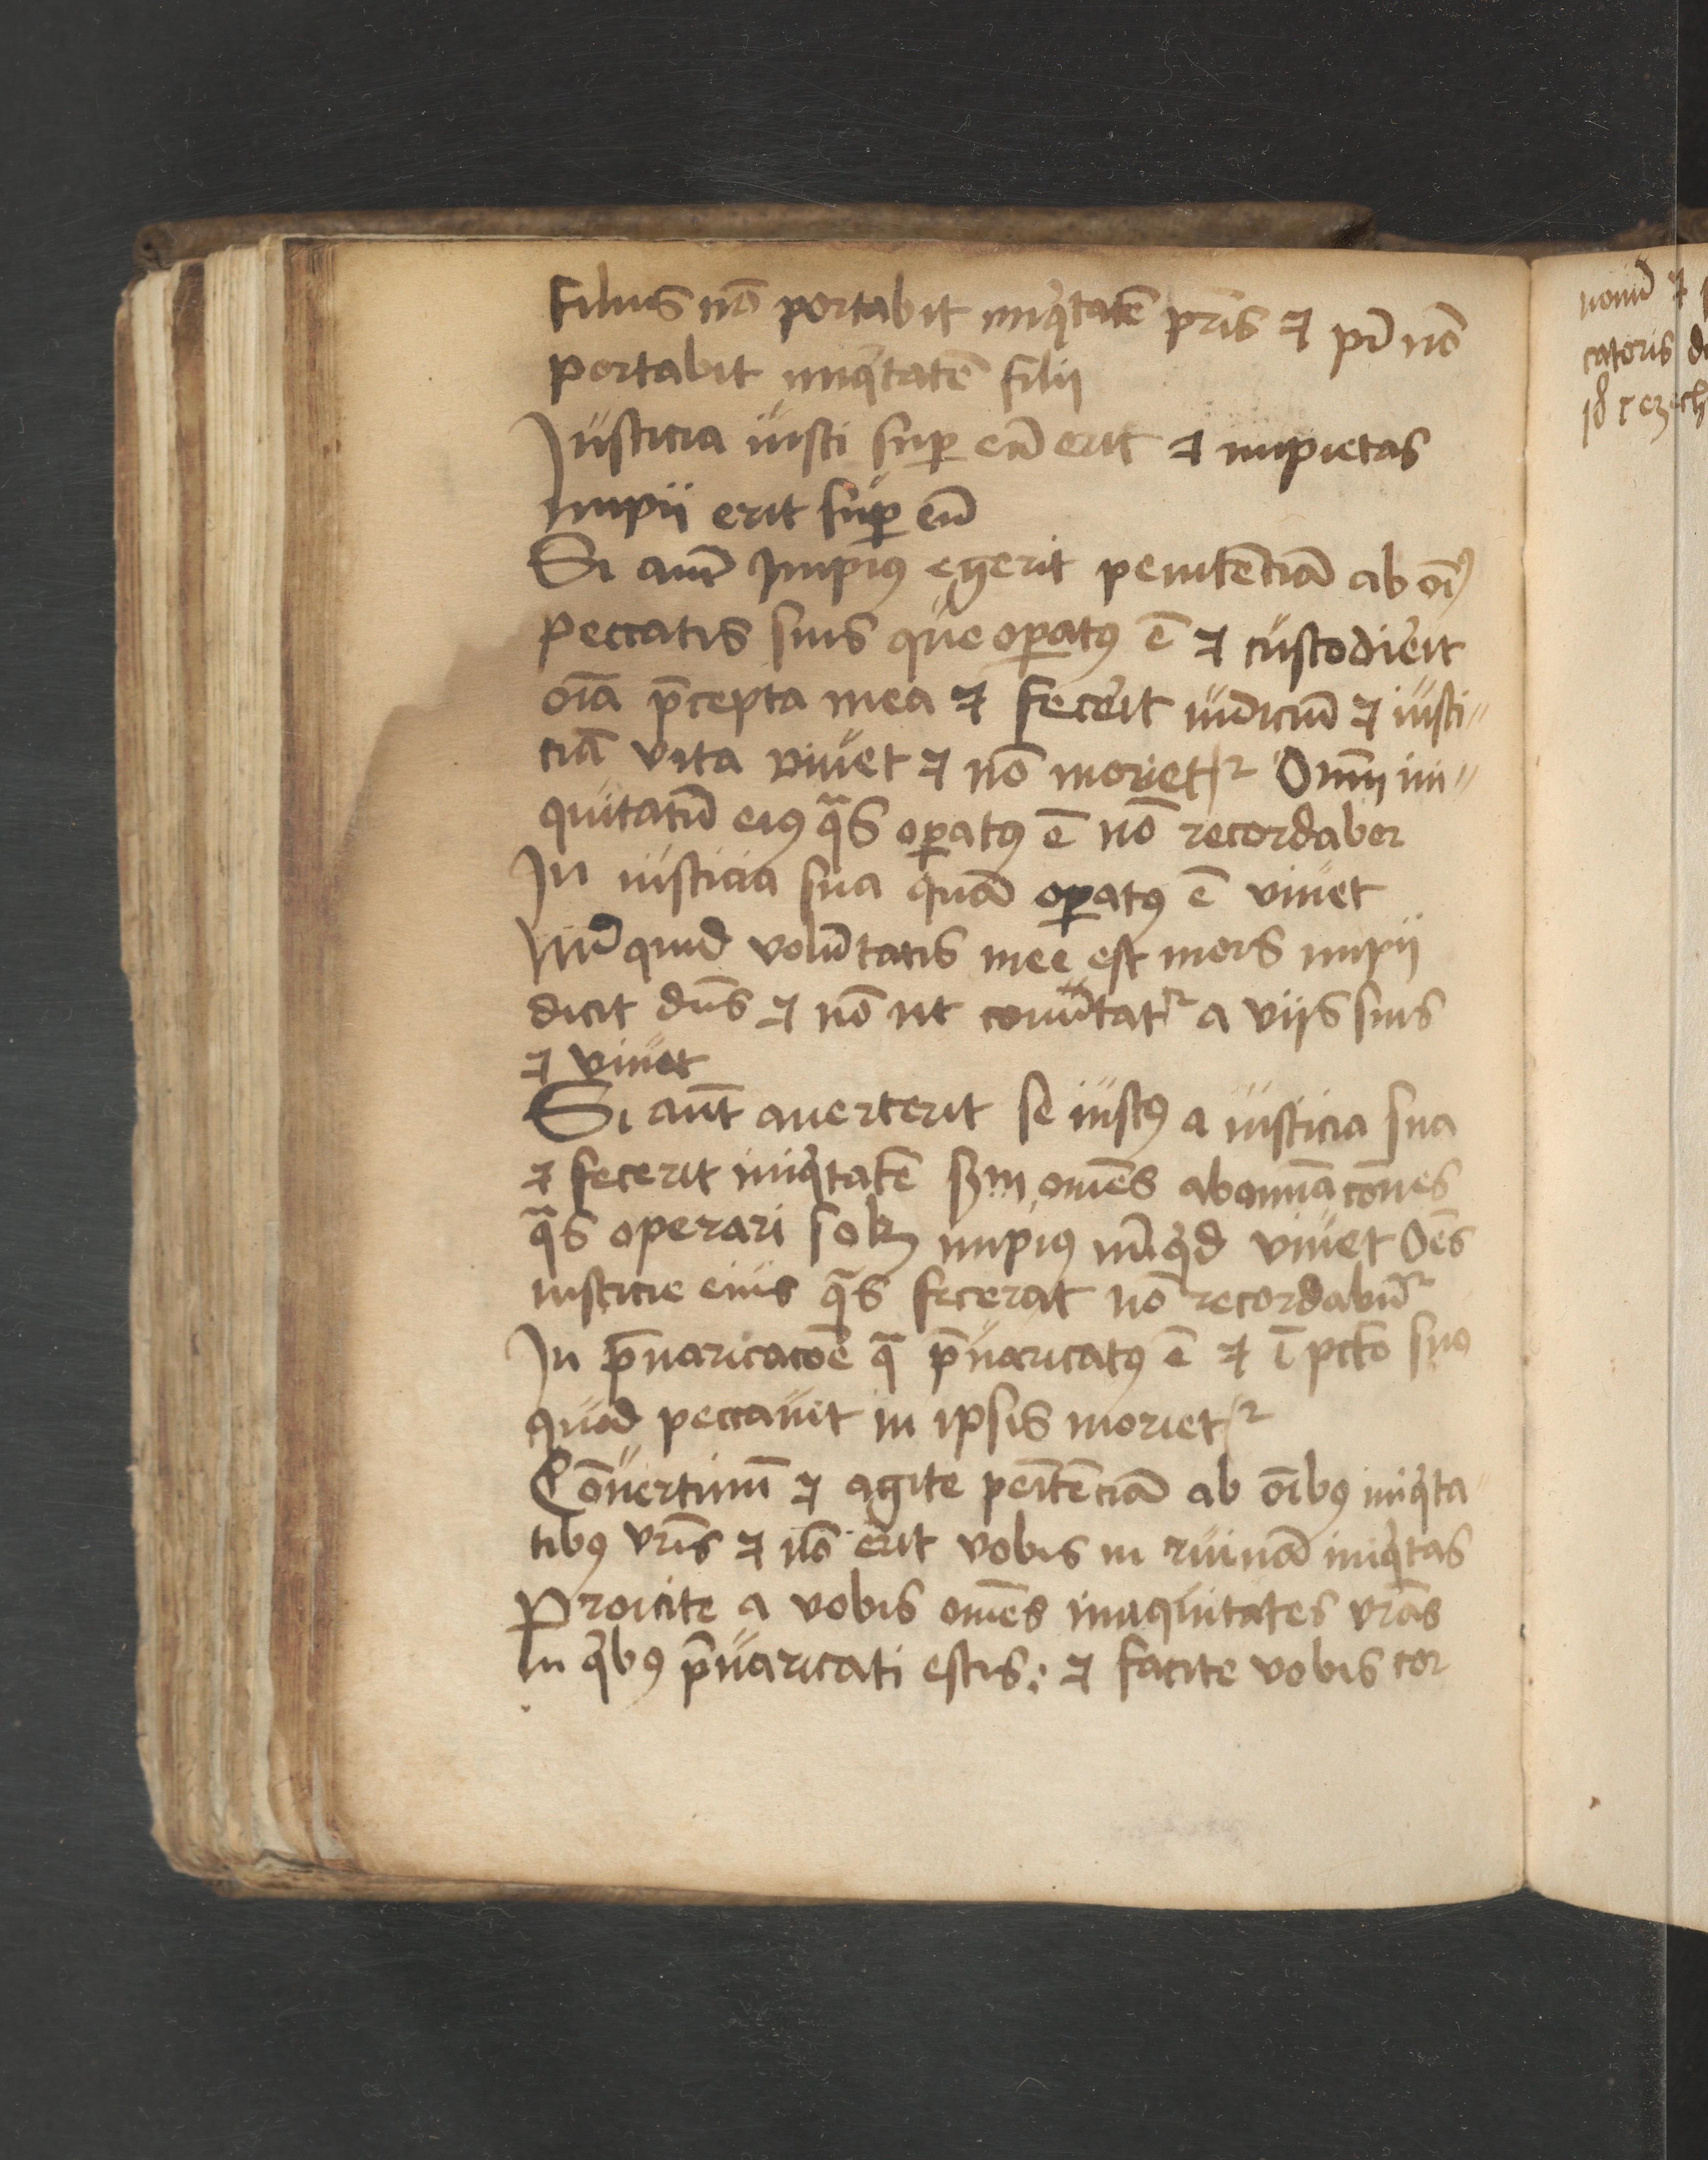 Filius nō portabit iniq̇tatē pr̄is ⁊ pr̄ nō
portabit iniq̇tatē filij
Justicia iusti sup̱ eū erit ⁊ impietas
Impii erit sup̱ eū
Si aut̄ Impiꝯ egerit penitēciā ab oı̄ꝯ
peccatis suis que op̱atꝯ ē ⁊ custodierit
oı̄a p̄cepta mea ⁊ fecerit iudiciū ⁊ iusti〃
ciā vita viuet ⁊ nō moriet᷑ Omnı̄ ini〃
quitatū eiꝯ qᷓs op̱atꝯ ē nō recordabor
In iusticia sua quā op̱atꝯ ē viuet
Nūquid volūtatis mee est mors impii
dicit dn̄s ⁊ nō ut cōu̓tat᷑ a viis suis
⁊ viuet
Si aut̄ auerterit se iustꝯ a iusticia sua
⁊ fecerit iniq̇tatē sꝫm om̄es abomīacōnes
qᷓs operari solꝫ impiꝯ nūq̇d viuet Oēs
iusticie eius qᷓs fecerat nō recordabūt᷑
In p̄uaricacōe qᷓ p̄uaricatꝯ ē ⁊ ī pcto suo
quod peccauit in ipsis moriet᷑
Cōuertimī ⁊ agite peı̄tēciā ab oı̄bꝯ iniq̇ta〃
tibꝯ vr̄is ⁊ nō erit vobis in ruinā iniq̇tas
Proicite a vobis om̄es iniquitates vr̄as
In q̇bꝯ p̄uaricati estis: ⁊ facite vobis cor
nouū ⁊
catoris
18 ezech